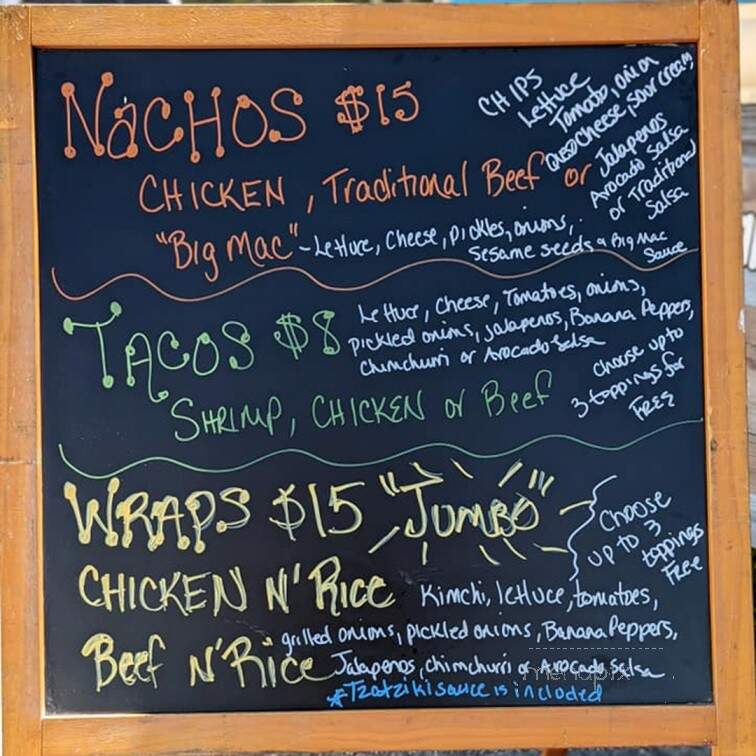 NACHOS $15
CHIPS
Lettuce
Tomato, onion
Queso Cheese, sour cream,
Jalapenos
Avocado Salsa
or Traditional
Salsa
CHICKEN, Traditional Beef or
"Big Mac" - Lettuce, Cheese, pickles, onions,
Sesame seeds & Big Mac
Sauce
TACOS $8
Lettuce, Cheese, Tomatoes, onions,
pickled onions, jalapenos, Banana Peppers,
chimchurri or Avocado Salsa
SHRIMP, CHICKEN or Beef
choose up to
3 toppings for
FREE
WRAPS $15 "JUMBO"
Choose
up to 3
toppings
Free
CHICKEN N' Rice
Kimchi, lettuce, tomatoes,
grilled onions, pickled onions, Banana Peppers,
Beef N' Rice
Jalapenos, chimchurri or Avocado Salsa
*Tzatziki sauce is included
menupix